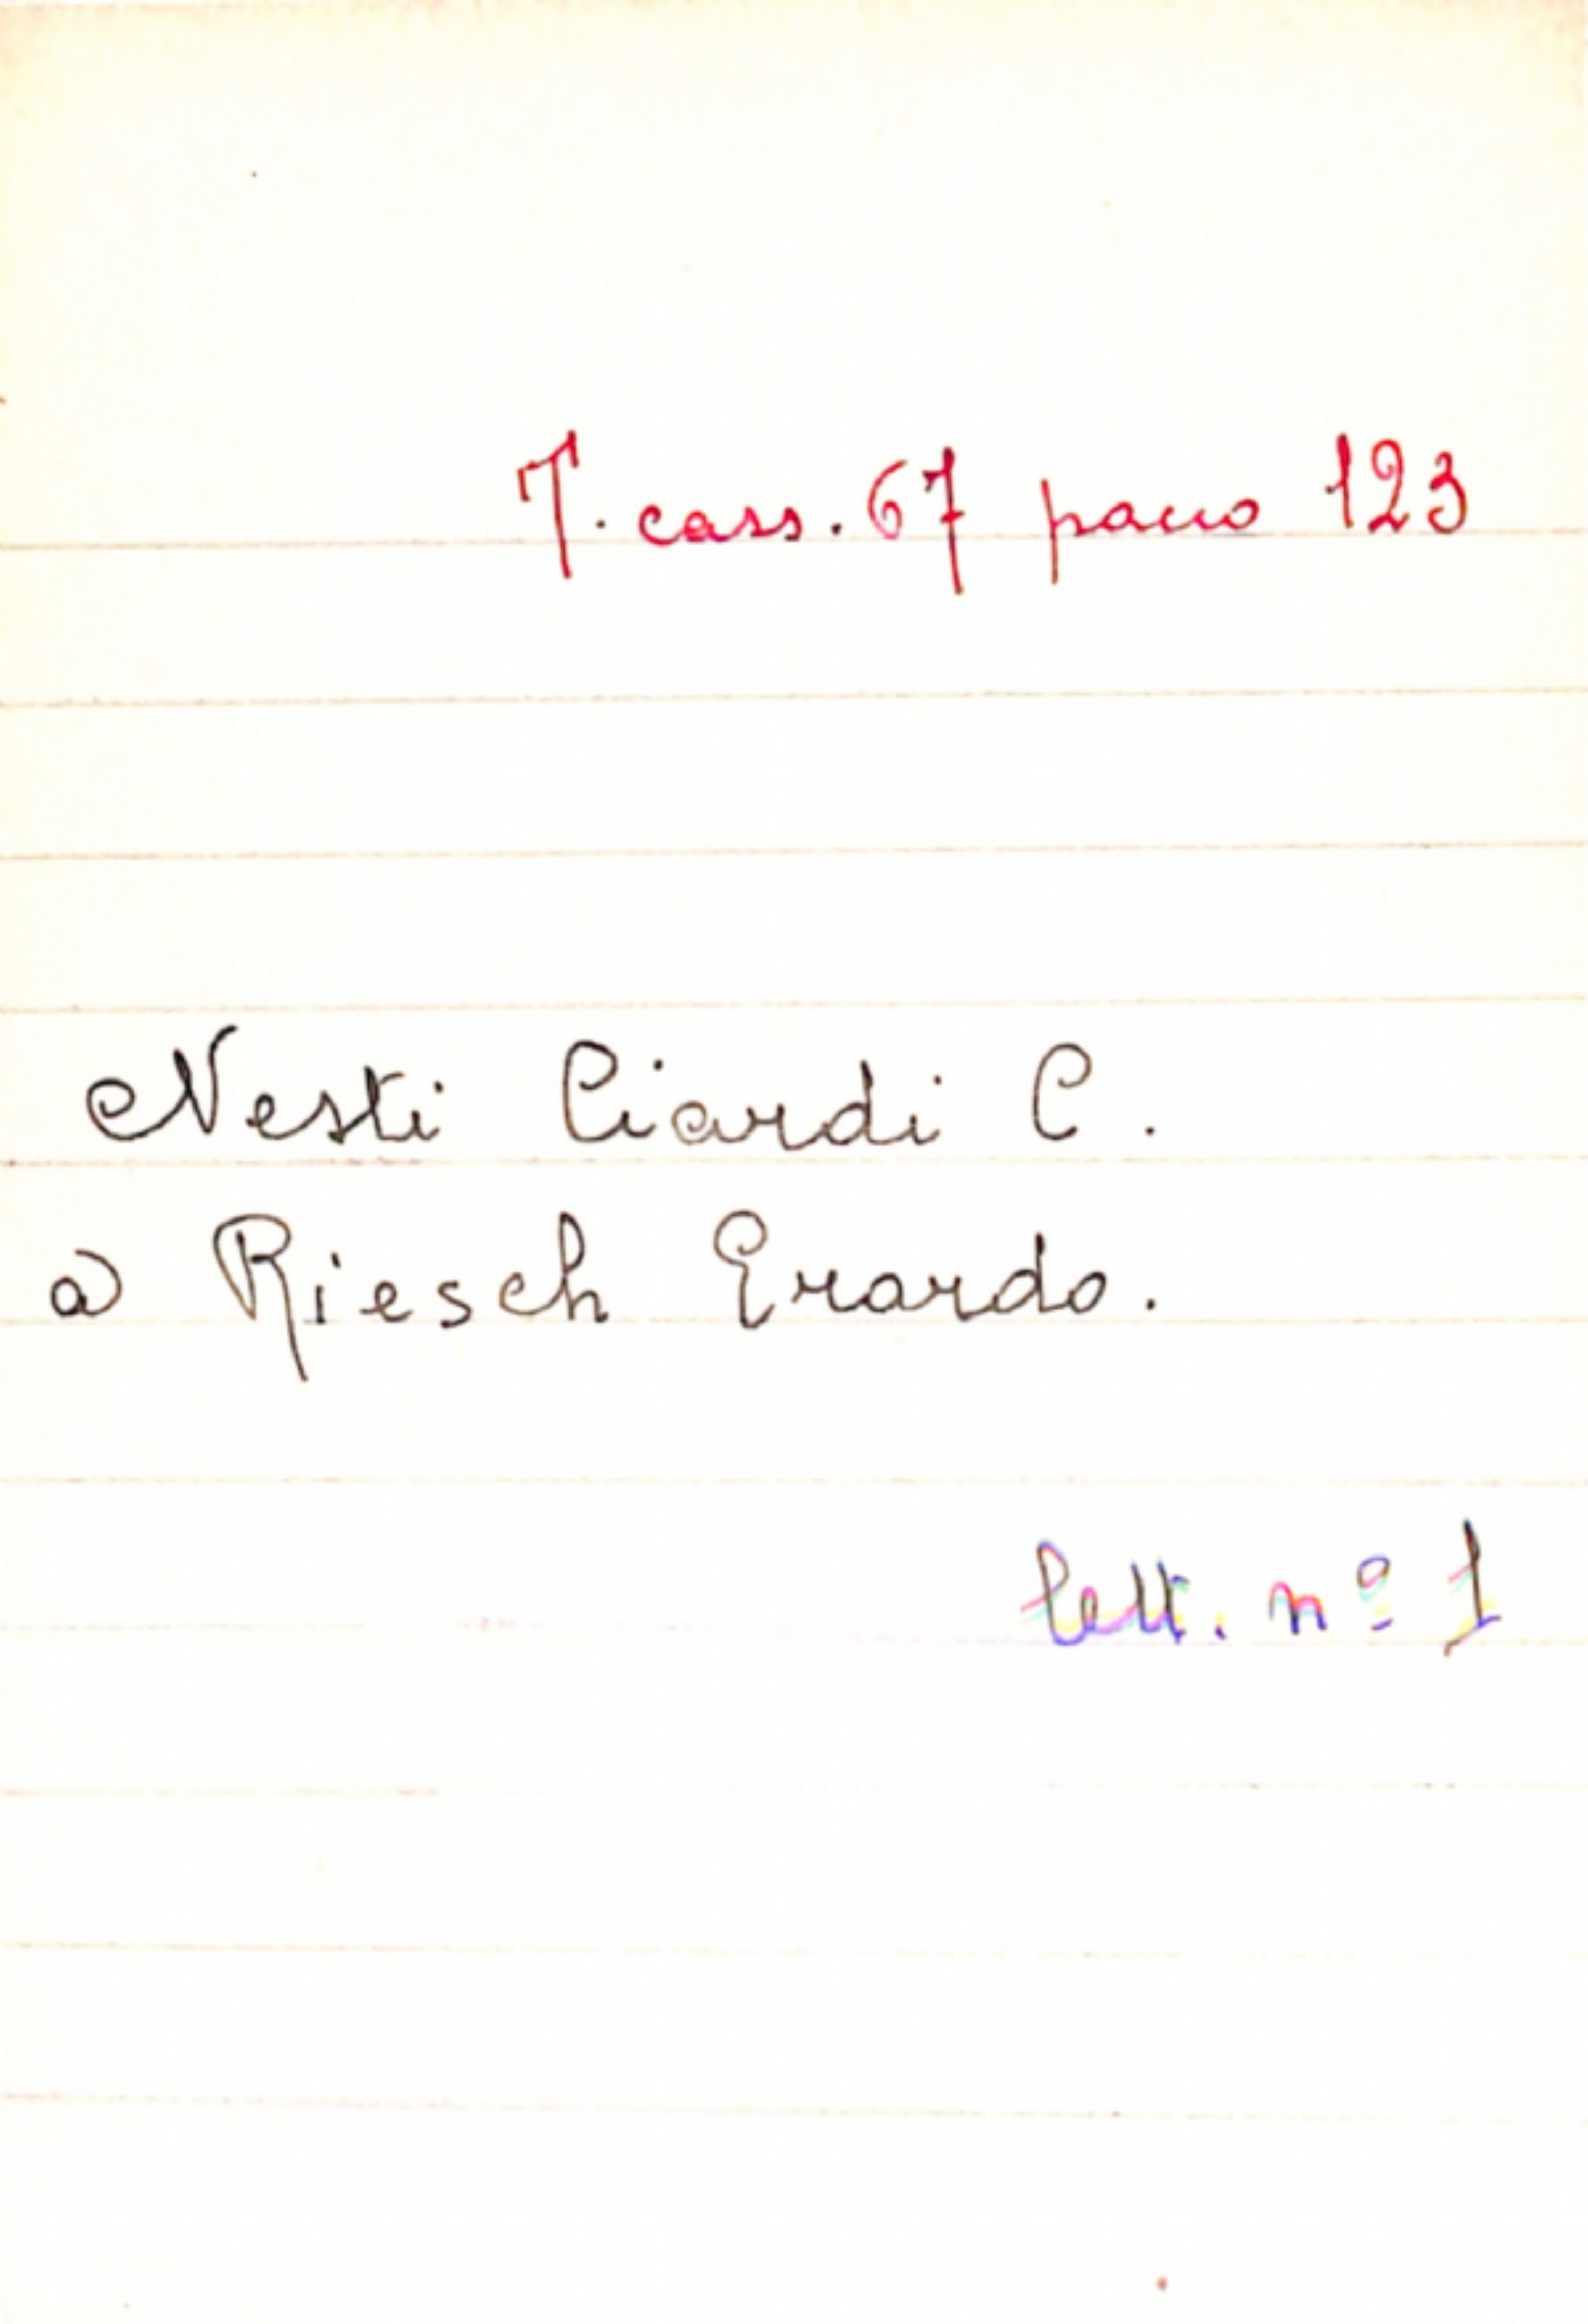 T. cass. 67 pacco 123
Nesti Ciardi C.
a Riesch Erardo.
lett. nº 1